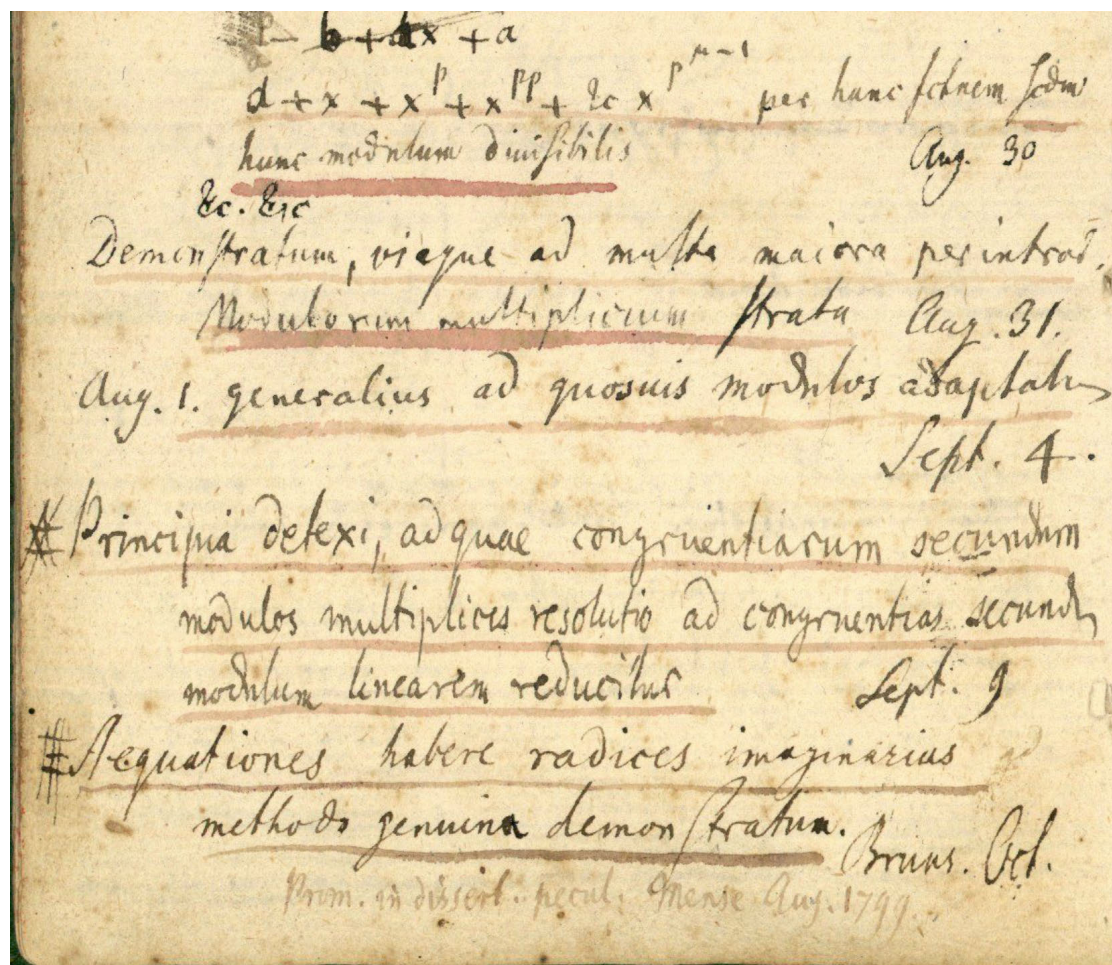 1 - b + dx + a
d + x + x^p + x^pp + &c x^p^μ-1 per hunc fctnem scdm
hunc modulum divisibilis Aug. 30
&c. &c
Demonstratum, viaque ad multa maiora per introd.
Modulorum multiplicium strata Aug. 31.
Aug. 1. generalius ad quosvis modulos adaptatum
Sept. 4.
Principia detexi, ad quae congruentiarum secundum
modulos multiplices resolutio ad congruentias secundum
modulum linearem reducitur Sept. 9
Aequationes habere radices imaginarias
methodo genuina demonstratum. Bruns. Oct.
Prom. in dissert. pecul. Mense Aug. 1799